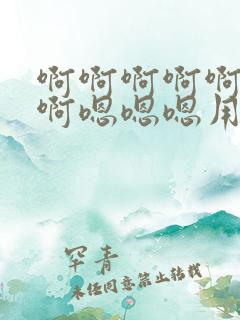 啊啊啊啊啊
啊嗯嗯嗯用
罕青
未经同意禁止转载